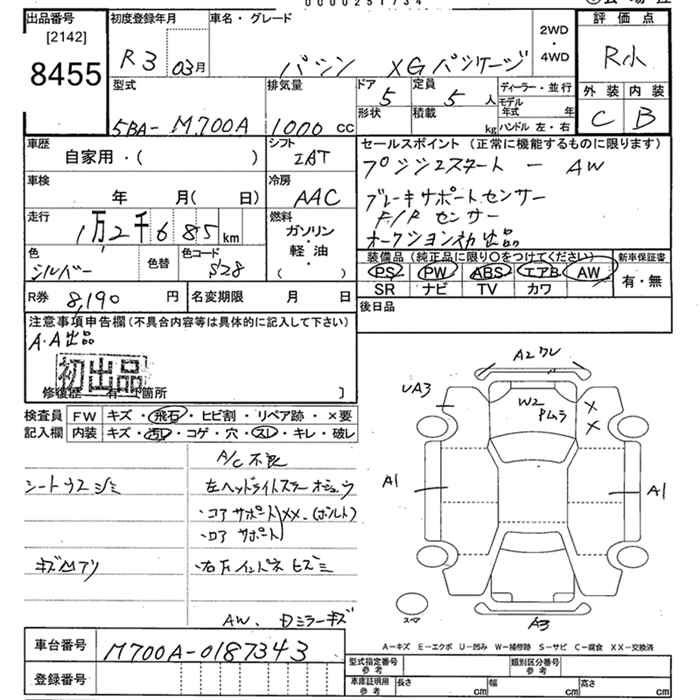 出品番号 初度登録年月 車名・グレード 評価点
[2142]
8455
R3 03月 パッソ XGパッケージ 2WD・4WD R小
外装 内装
C B
型式 排気量 ドア 定員 ディーラー・並行
5BA-M700A 1000cc 5 5人 モデル年式 年
形状 積載 kg ハンドル 左・右
車歴 シフト セールスポイント(正常に機能するものに限ります)
自家用・( ) IAT プッシュスタート ー AW
車検 冷房 ブレーキサポートセンサー
年 月( 日) AAC F/R センサー
走行 燃料 オークション初出品
1万2千685km ガソリン・軽油・( )
色 色替 色コード 装備品(純正品に限り○をつけてください) 新車保証書
シルバー S28 PS PW ABS エアB AW 有・無
SR ナビ TV カワ
R券 8,190円 名変期限 月 日 後日品
注意事項申告欄(不具合内容等は具体的に記入して下さい)
A.A出品
初出品
修復歴 有 箇所
検査員記入欄 FW キズ・飛石・ヒビ割・リペア跡・×要
内装 キズ・汚レ・コゲ・穴・スレ・キレ・破レ
A/C不良
シートウスジミ 左ヘッドライトステー
・コアサポートXX(ボルト)
・ロアサポート
キズ凹アリ ・右Fインパネヒズミ
AW、Dミラーキズ
A2 ワレ
UA3 W2 Pムラ X X
A1 A1
スペア A3
A−キズ E−エクボ U−凹み W−補修跡 S−サビ C−腐食 XX−交換済
車台番号 M700A-0187343
登録番号
型式指定番号 参考 類別区分番号 参考
車庫証明用 参考 長さ cm 幅 cm 高さ cm